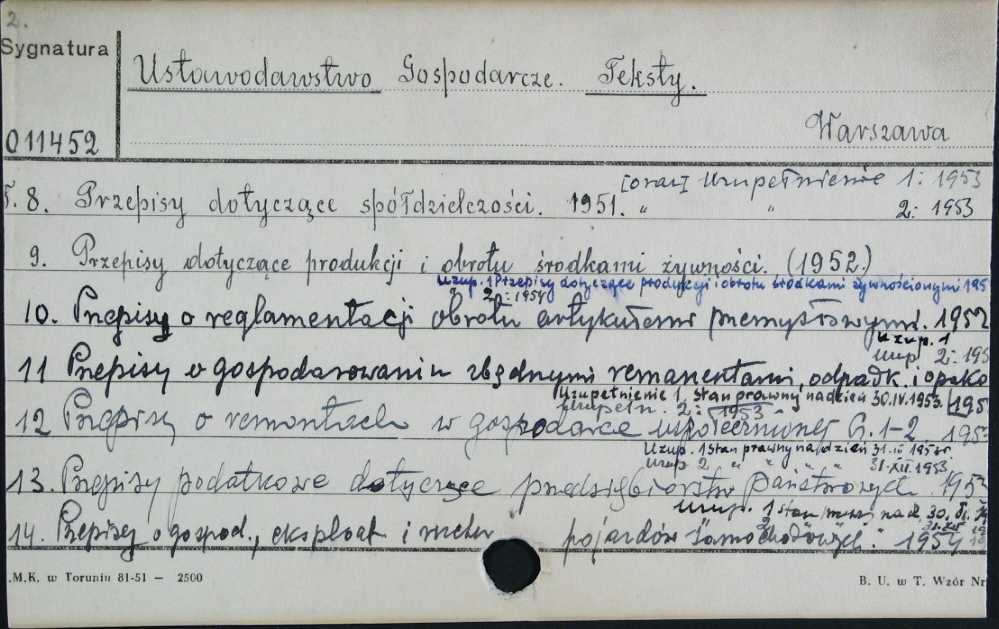 2.
Sygnatura
Ustawodawstwo Gospodarcze. Teksty.
011452
Warszawa
[oraz] Uzupełnienie 1: 1953
T. 8. Przepisy dotyczące spółdzielczości. 1951. " " 2: 1953
9. Przepisy dotyczące produkcji i obrotu środkami żywności. (1952.)
Uzup. 1 Przepisy dotyczące produkcji i obrotu środkami żywnościowymi 195
2: 1954
10. Przepisy o reglamentacji obrotu artykułami przemysłowymi. 1952
Uzup. 1
Uzup. 2: 195
11 Przepisy o gospodarowaniu zbędnymi remanentami, odpadk. i opako
Uzupełnienie 1, stan prawny na dzień 30.IV.1953. 195
Uzupełn. 2: 1953
12 Przepisy o remontach w gospodarce uspołecznionej Cz. 1-2 195
Uzup. 1 stan prawny na dzień 31.III 195
Uzup 2 " " " 31.XII.1953.
13. Przepisy podatkowe dotyczące przedsiębiorstw państwowych. 195
Uzup. 1 stan nad. 30.
2
14. Przepisy o gospod., eksploat i pojazdów samochodowych. 1954
.M.K. w Toruniu 81-51 — 2500
B. U. w T. Wzór Nr